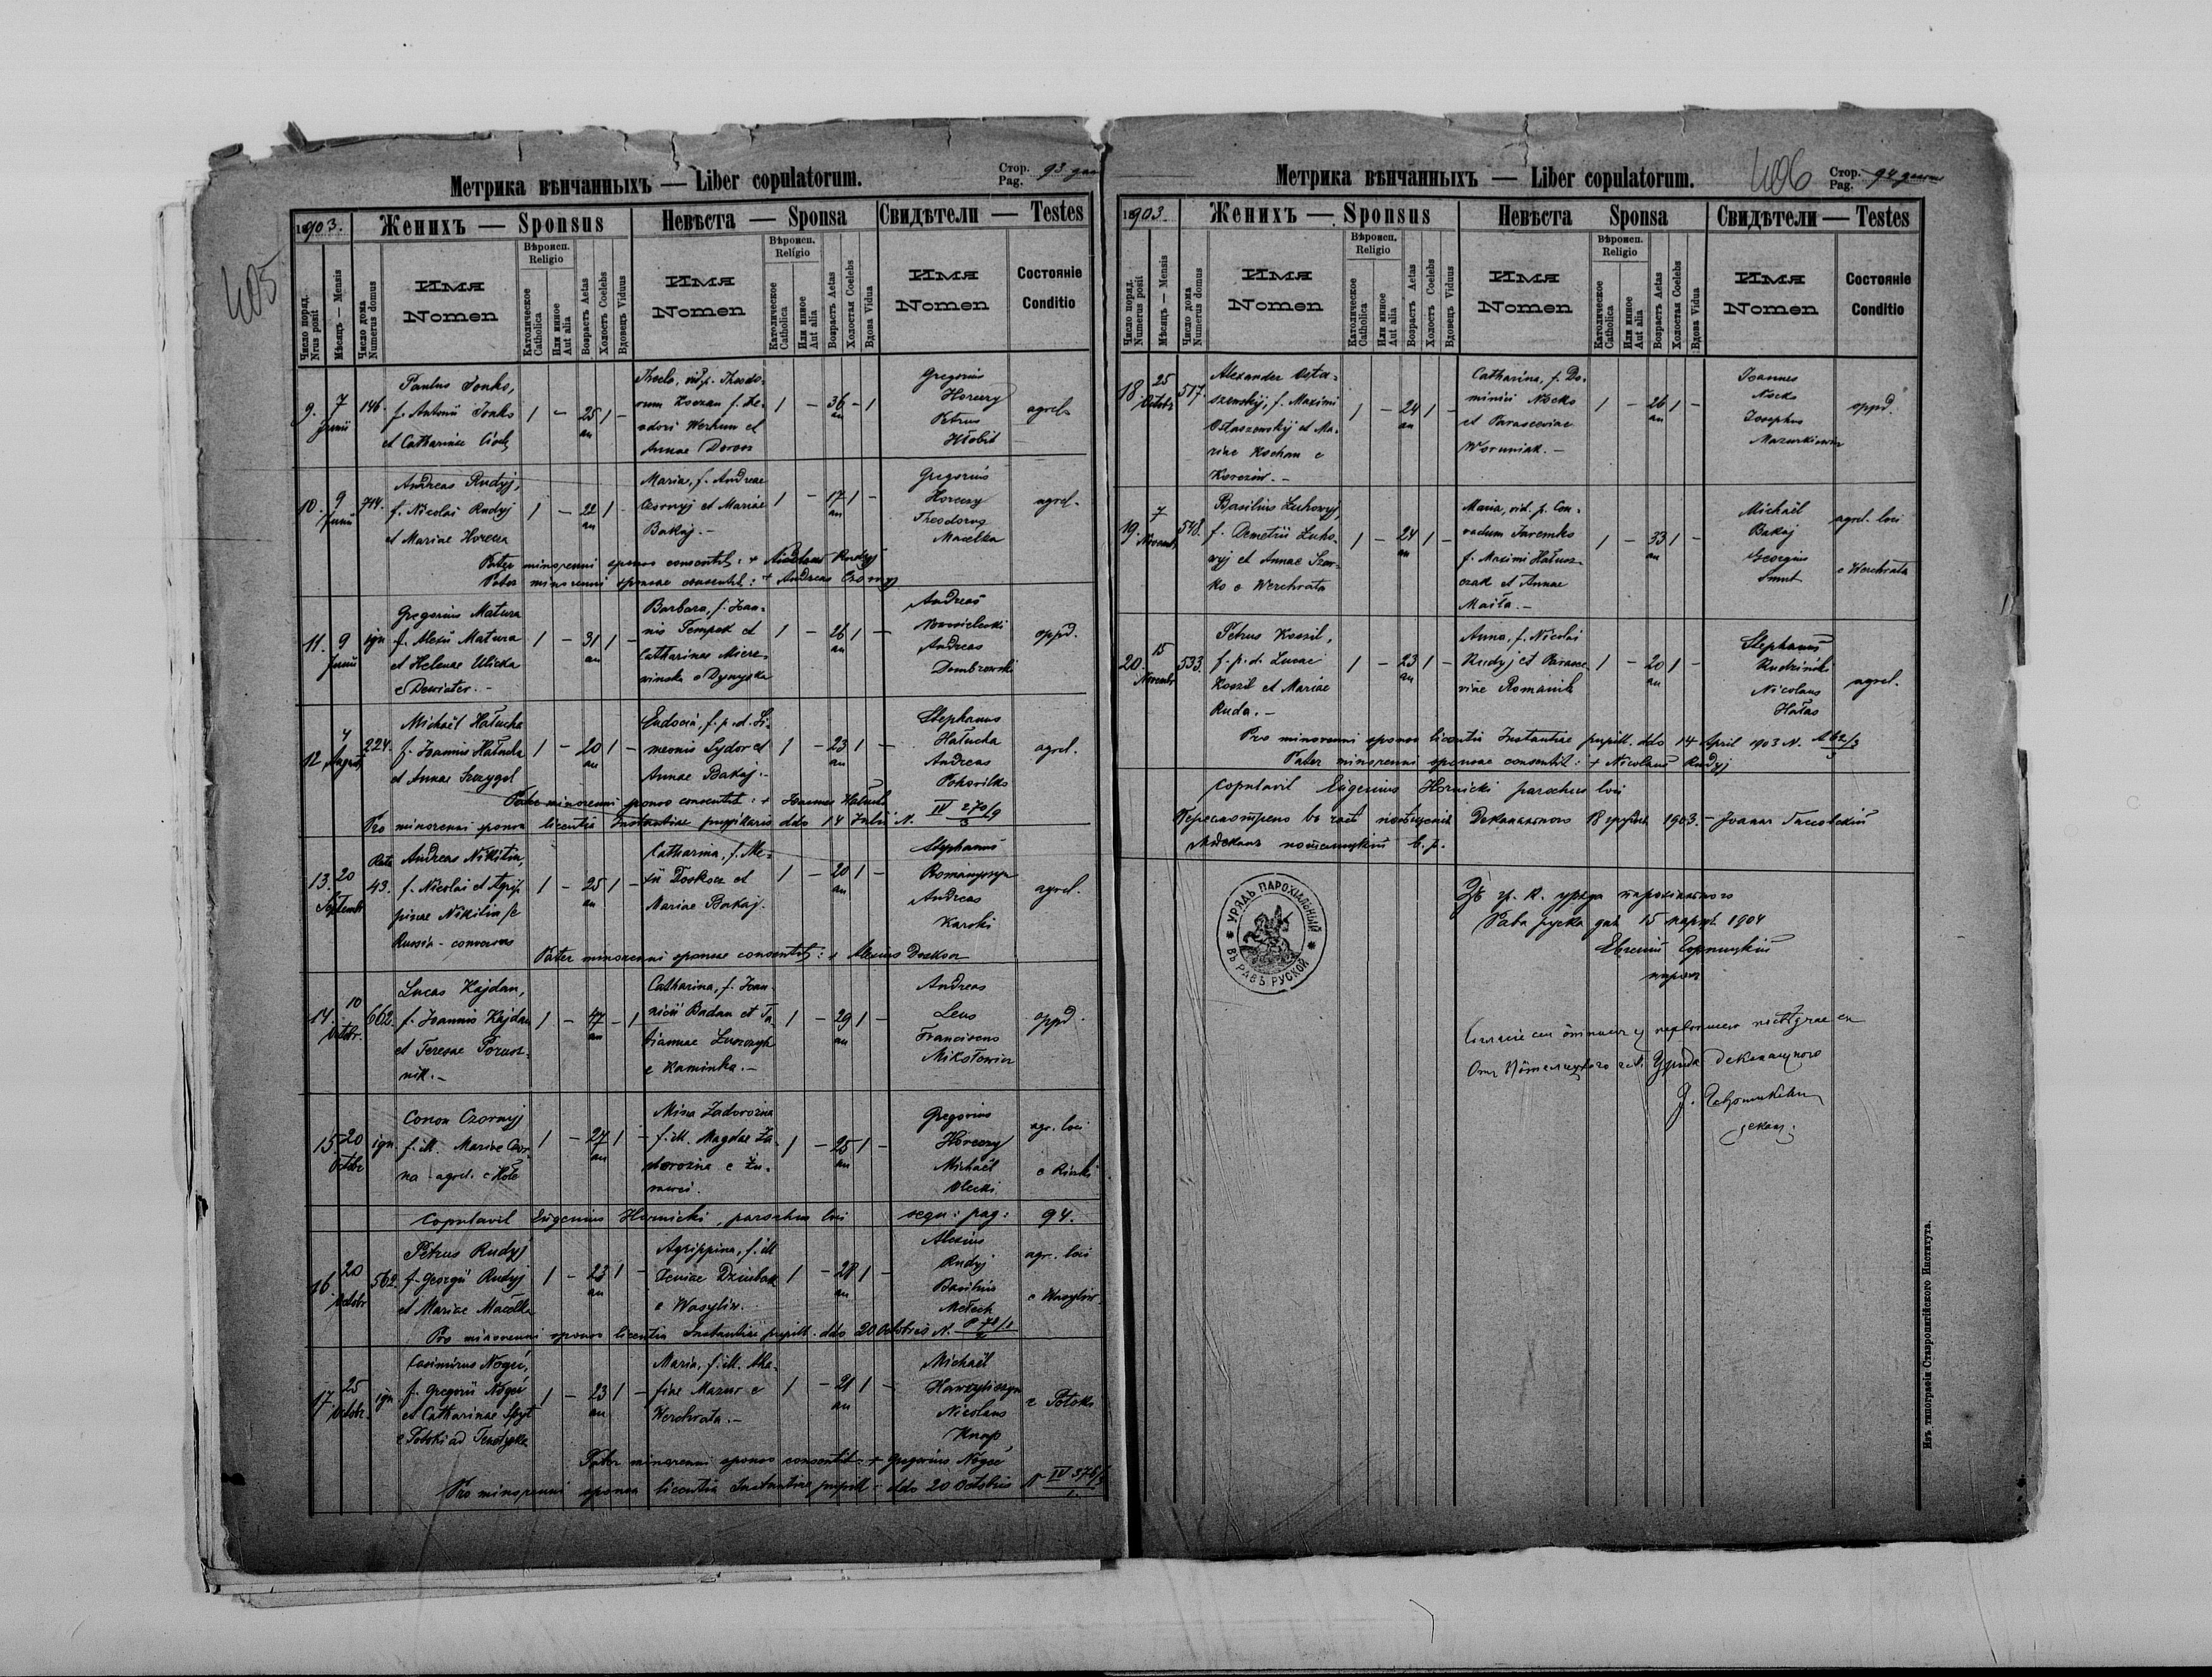 405
Метрика вѣнчанныхъ — Liber copulatorum.
Стор. Pag. 93
1903.
Женихъ — Sponsus
Невѣста — Sponsa
Свидѣтели — Testes
Число поряд. Nrus posit
Мѣсяцъ — Mensis
Число дома Numerus domus
Имя Nomen
Вѣроисп. Religio
Католическое Catholica
Или иное Aut alia
Возрастъ Aetas
Холостъ Coelebs
Вдовецъ Viduus
Имя Nomen
Вѣроисп. Religio
Католическое Catholica
Или иное Aut alia
Возрастъ Aetas
Холостая Coelebs
Вдова Vidua
Имя Nomen
Состояніе Conditio
9. 7 Junii 146.
Paulus Jonko,
f. Antonii Jonko
et Catharinae
1 — 25 an 1 —
Thecla, vid. p. Theodo-
rum Koczan f. Te-
odori Werhun et
Annae
1 — 36 an — 1
Gregorius
Horeczy
Petrus
Hłobit
agrel.
10. 9 Junii 714.
Andreas Rudyj,
f. Nicolai Rudyj
et Mariae
1 — 22 an 1 -
Maria, f. Andreae
Czornyj et Mariae
Bakaj. —
1 — 17 an 1 -
Gregorius
Horeczy
Theodorus
Macełka
agrel.
Pater minorenni sponso consentit: + Rudyj
Pater minorenni sponsae consentit: + Andreas Czornyj
11. 9 Junii ign
Gregorius Matura
f. Alexii Matura
et Helenae Ulicka
e —
1 — 31 an 1 -
Barbara, f. Joan-
nis Tempak et
Catharinae Micre-
winska e Dynyska
1 — 26 an 1 —
Andreas
Andreas
Dombrowski
oppd.
12. 4 August 224.
Michaël Hałucha
f. Joannis Hałucha
et Annae Szczygel
1 — 20 an 1 —
Eudocia, f. p. d. Si-
meonis Sydor et
Annae Bakaj. —
1 — 23 an 1 —
Stephanus
Hałucha
Andreas
Pohorilko
agrel.
Pater minorenni sponso consentit: + Joannes Hałucha
Pro minorenni sponsa licentia Instantiae pupillaris ddo 14 Julii N. IV 270/9 3
13. 20 Septembr 43.
Andreas Nikitin,
f. Nicolai et Agrip-
pinae Nikitin /e
Russia - conversus
1 — 25 an 1 —
Catharina, f. Ale-
xii Doskocz et
Mariae Bakaj.
1 — 20 an 1 —
Stephanus
Romanyszyn
Andreas
Karski
agrel.
Pater minorenni sponsae consentit: + Alexius Doskocz
14. 10 Octobr. 662.
Lucas Kajdan,
f. Joannis Kajdan
et Teresae Porusz-
nik. —
1 — 47 an — 1
Catharina, f. Joan-
nicii Badan et Ta-
tiannae Luszczyk
e Kaminka. —
1 — 29 an 1 —
Andreas
Leus
Franciscus
Mikołowicz
oppd.
15. 20 Octobr ign
Conon Czornyj
f. ill. Mariae Czor-
na agrel. e Hołe
1 — 27 an 1 —
Mina Zadorożna
f. ill. Magdae Za-
dorożna e Żu-
rawci.
1 — 25 an 1 —
Gregorius
Horeczy
Michaël
Olecki
agr. loci
e Rinki
Copulavit Eugenius Hornicki, parochus loci sequ: pag: 94.
16. 20 Octobr 562.
Petrus Rudyj
f. Georgii Rudyj
et Mariae Macełka
1 — 23 an 1 —
Agrippina, f. ill
Xeniae Dziubak
e Wasyliw.
1 — 28 an 1 —
Alexius
Rudyj
Basilius
Mełech
agr. loci
e Wasyliw
Pro minorenni sponso licentia Instantiae pupill. ddo 20 Octobris N.
17. 25 Octobr. ign
Casimirus Noga,
f. Gregorii Noga
et Catharinae Spyt
e Potoki ad
1 — 23 an 1 —
Maria, f. ill. Aha-
fiae Mazur e
Werchrata. —
1 — 21 an 1 —
Michaël
Hawryliszyn
Nicolaus
Knap
e Potoki
Pater minorenni sponso consentit: + Gregorius Noga
Pro minorenni sponsa licentia Instantiae pupill: ddo 20 Octobris N IV
Метрика вѣнчанныхъ — Liber copulatorum.
406
Стор. Pag. 94
1903.
Женихъ — Sponsus
Невѣста Sponsa
Свидѣтели — Testes
Число поряд. Numerus posit
Мѣсяцъ — Mensis
Число дома Numerus domus
Имя Nomen
Вѣроисп. Religio
Католическое Catholica
Или иное Aut alia
Возрастъ Aetas
Холостъ Coelebs
Вдовецъ Viduus
Имя Nomen
Вѣроисп. Religio
Католическое Catholica
Или иное Aut alia
Возрастъ Aetas
Холостая Coelebs
Вдова Vidua
Имя Nomen
Состояніе Conditio
18 25 Octobr 517.
Alexander Osta-
szewskij, f. Maximi
Ostaszewskij et Ma-
riae Kochan e
Korczów. —
1 — 24 an 1 —
Catharina, f. Do-
minici Nocko
et Parasceviae
Woruniak. —
1 — 26 an 1 —
Joannes
Nocko
Josephus
Mazurkiewicz
oppd.
19. 7 Novembr 548.
Basilius Łuhowyj,
f. Demetrii Łuho-
wyj et Annae Szew-
ko e Werchrata
1 — 24 an 1 —
Maria, vid. p. Con-
radum Jaremko
f. Maximi Hałusz-
czak et Annae
Maiła. —
1 — 33 an 1 —
Michaël
Bakaj
Georgius
Smut
agrel. loci
e Werchrata
20. 15 Novembr 533.
Petrus Koszil,
f. p. d. Lucae
Koszil et Mariae
Ruda. —
1 — 23 an 1 —
Anna, f. Nicolai
Rudyj et Parasce-
viae Romanik
1 — 20 an 1 —
Stephanus
Rudziński
Nicolaus
Hałas
agrel.
Pro minorenni sponso licentia Instantiae pupill. ddo 14 April 903 N. 62/3
Pater minorenni sponsae consentit: + Nicolaus Rudyj
Copulavit Eugenius Hornicki parochus loci
Пересмотрено въ часѣ Деканального 18 грудня 1903. — Іоаннъ
УРЯДЪ ПАРОХІАЛЬНЫЙ
ВЪ РАВѢ РУСКОЙ
Зъ гр. к. уряда парохіального
Рава руска дня 15 марта 1904
Евгеній Горницкій
парохъ
Изъ типографіи Ставропигійского Института.